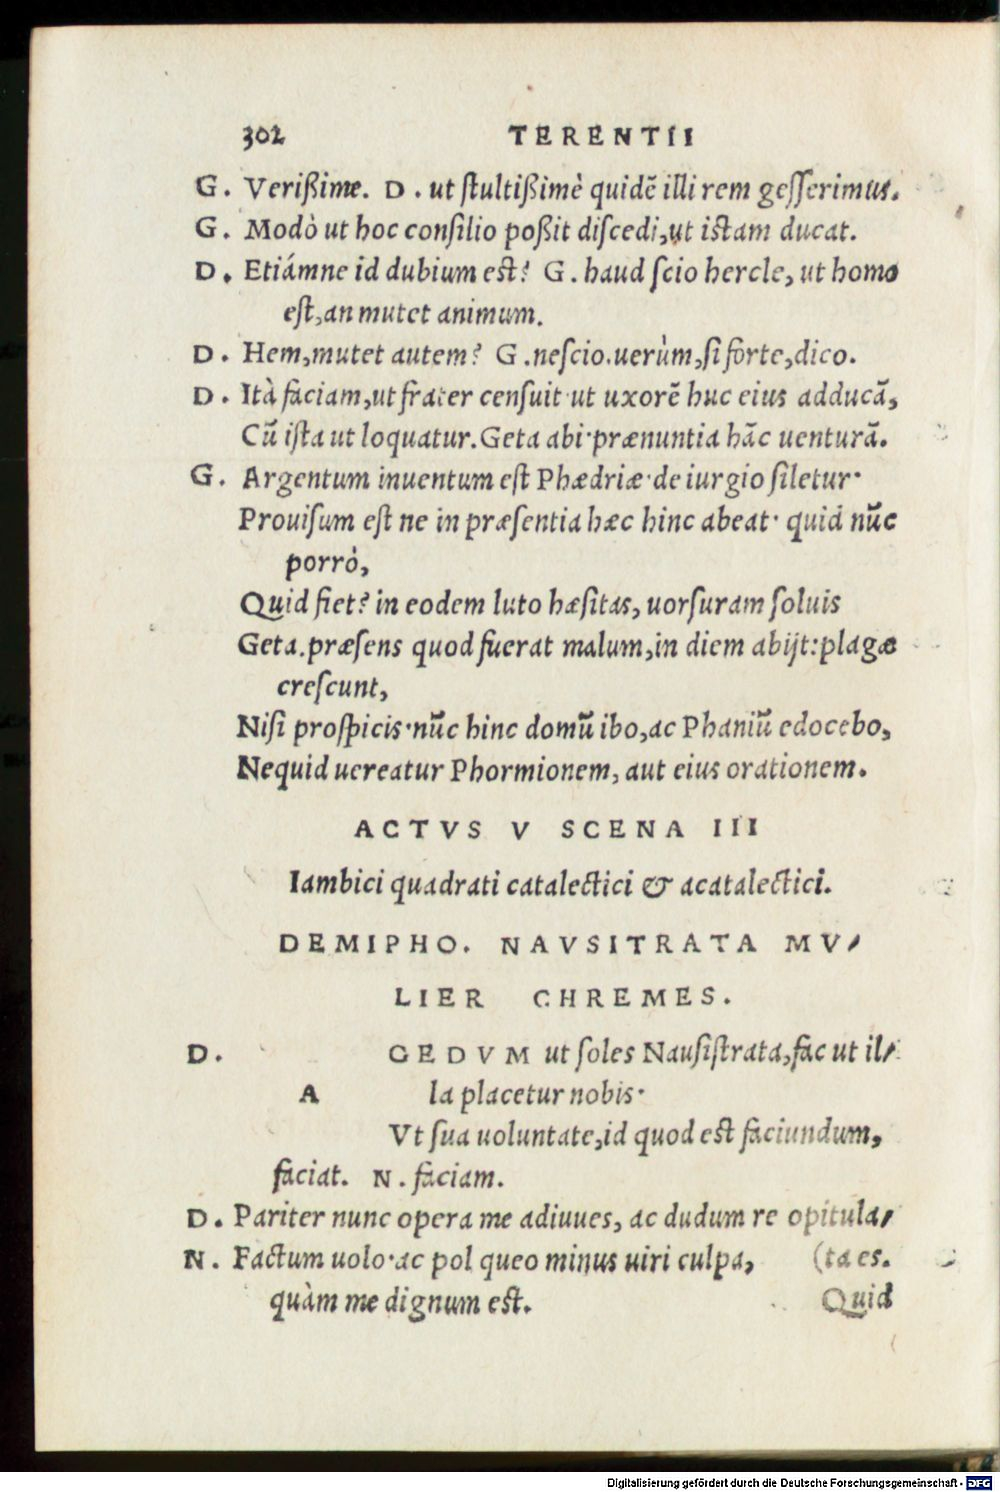 302 TERENTII
G. Verißime. D. ut ſtultißimè quidē illi rem geſſerimus.
G. Modò ut hoc conſilio poßit diſcedi, ut iſtam ducat.
D. Etiámne id dubium eſt? G. haud ſcio hercle, ut homo
eſt, an mutet animum.
D. Hem, mutet autem? G. neſcio. uerùm, ſi forte, dico.
D. Ità faciam, ut frater cenſuit· ut uxorē huc eius adducā,
Cū iſta ut loquatur. Geta abi· prænuntia hāc uenturā.
G. Argentum inuentum eſt Phædriæ· de iurgio ſiletur·
Prouiſum eſt ne in præſentia hæc hinc abeat· quid nūc
porrò,
Quid fiet? in eodem luto hæſitas, uorſuram ſoluis
Geta. præſens quod fuerat malum, in diem abijt: plagæ
creſcunt,
Niſi proſpicis· nūc hinc domū ibo, ac Phaniū edocebo,
Nequid uereatur Phormionem, aut eius orationem.
ACTVS V SCENA III
Iambici quadrati catalectici & acatalectici.
DEMIPHO. NAVSITRATA MV⸗
LIER CHREMES.
D. GEDVM ut ſoles Nauſiſtrata, fac ut il⸗
A la placetur nobis·
Vt ſua uoluntate, id quod eſt faciundum,
faciat. N. faciam.
D. Pariter nunc opera me adiuues, ac dudum re opitula⸗
N. Factum uolo· ac pol queo minus uiri culpa, (ta es.
quàm me dignum eſt. Quid
Digitalisierung gefördert durch die Deutsche Forschungsgemeinschaft - DFG